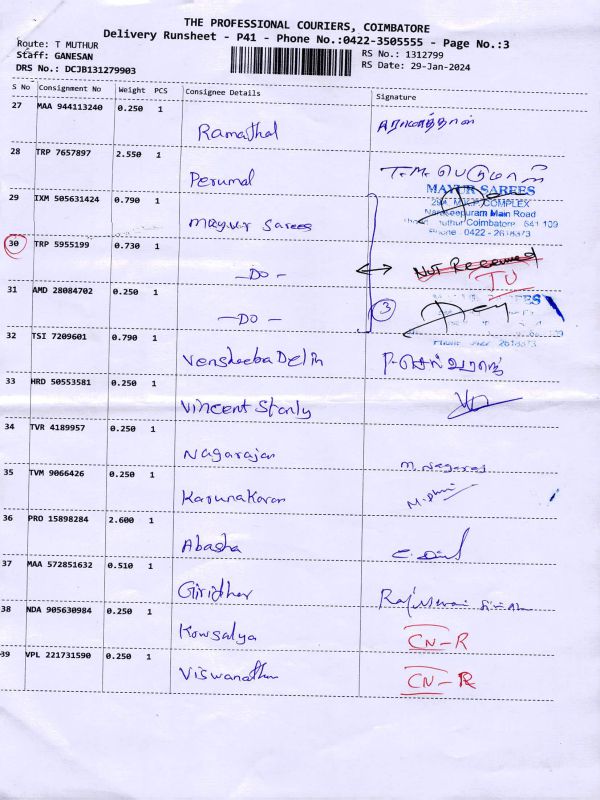 THE PROFESSIONAL COURIERS, COIMBATORE
Delivery Runsheet - P41 - Phone No.:0422-3505555 - Page No.:3
Route: T MUTHUR
Staff: GANESAN
DRS No.: DCJB131279903
RS No.: 1312799
RS Date: 29-Jan-2024
S No Consignment No Weight PCS Consignee Details Signature
27 MAA 944113240 0.250 1
Ramathal
28 TRP 7657897 2.550 1
Perumal T.M. பெருமாள்
29 IXM 505631424 0.790 1
Mayur Sarees
MAYUR SAREES
COMPLEX
Main Road
Coimbatore 641 109
Phone : 0422 - 2618373
30 TRP 5955199 0.730 1
- DO - Not Received
TU
31 AMD 28084702 0.250 1
- DO - 3
32 TSI 7209601 0.790 1
33 HRD 50553581 0.250 1
Vincent Stanly
34 TVR 4189957 0.250 1
Nagarajan M. Nagaraj
35 TVM 9066426 0.250 1
Karunakaran
36 PRO 15898284 2.600 1
Abasha
37 MAA 572851632 0.510 1
Giridhar
38 NDA 905630984 0.250 1
Kowsalya CN-R
39 VPL 221731590 0.250 1
Viswanathan CN-R